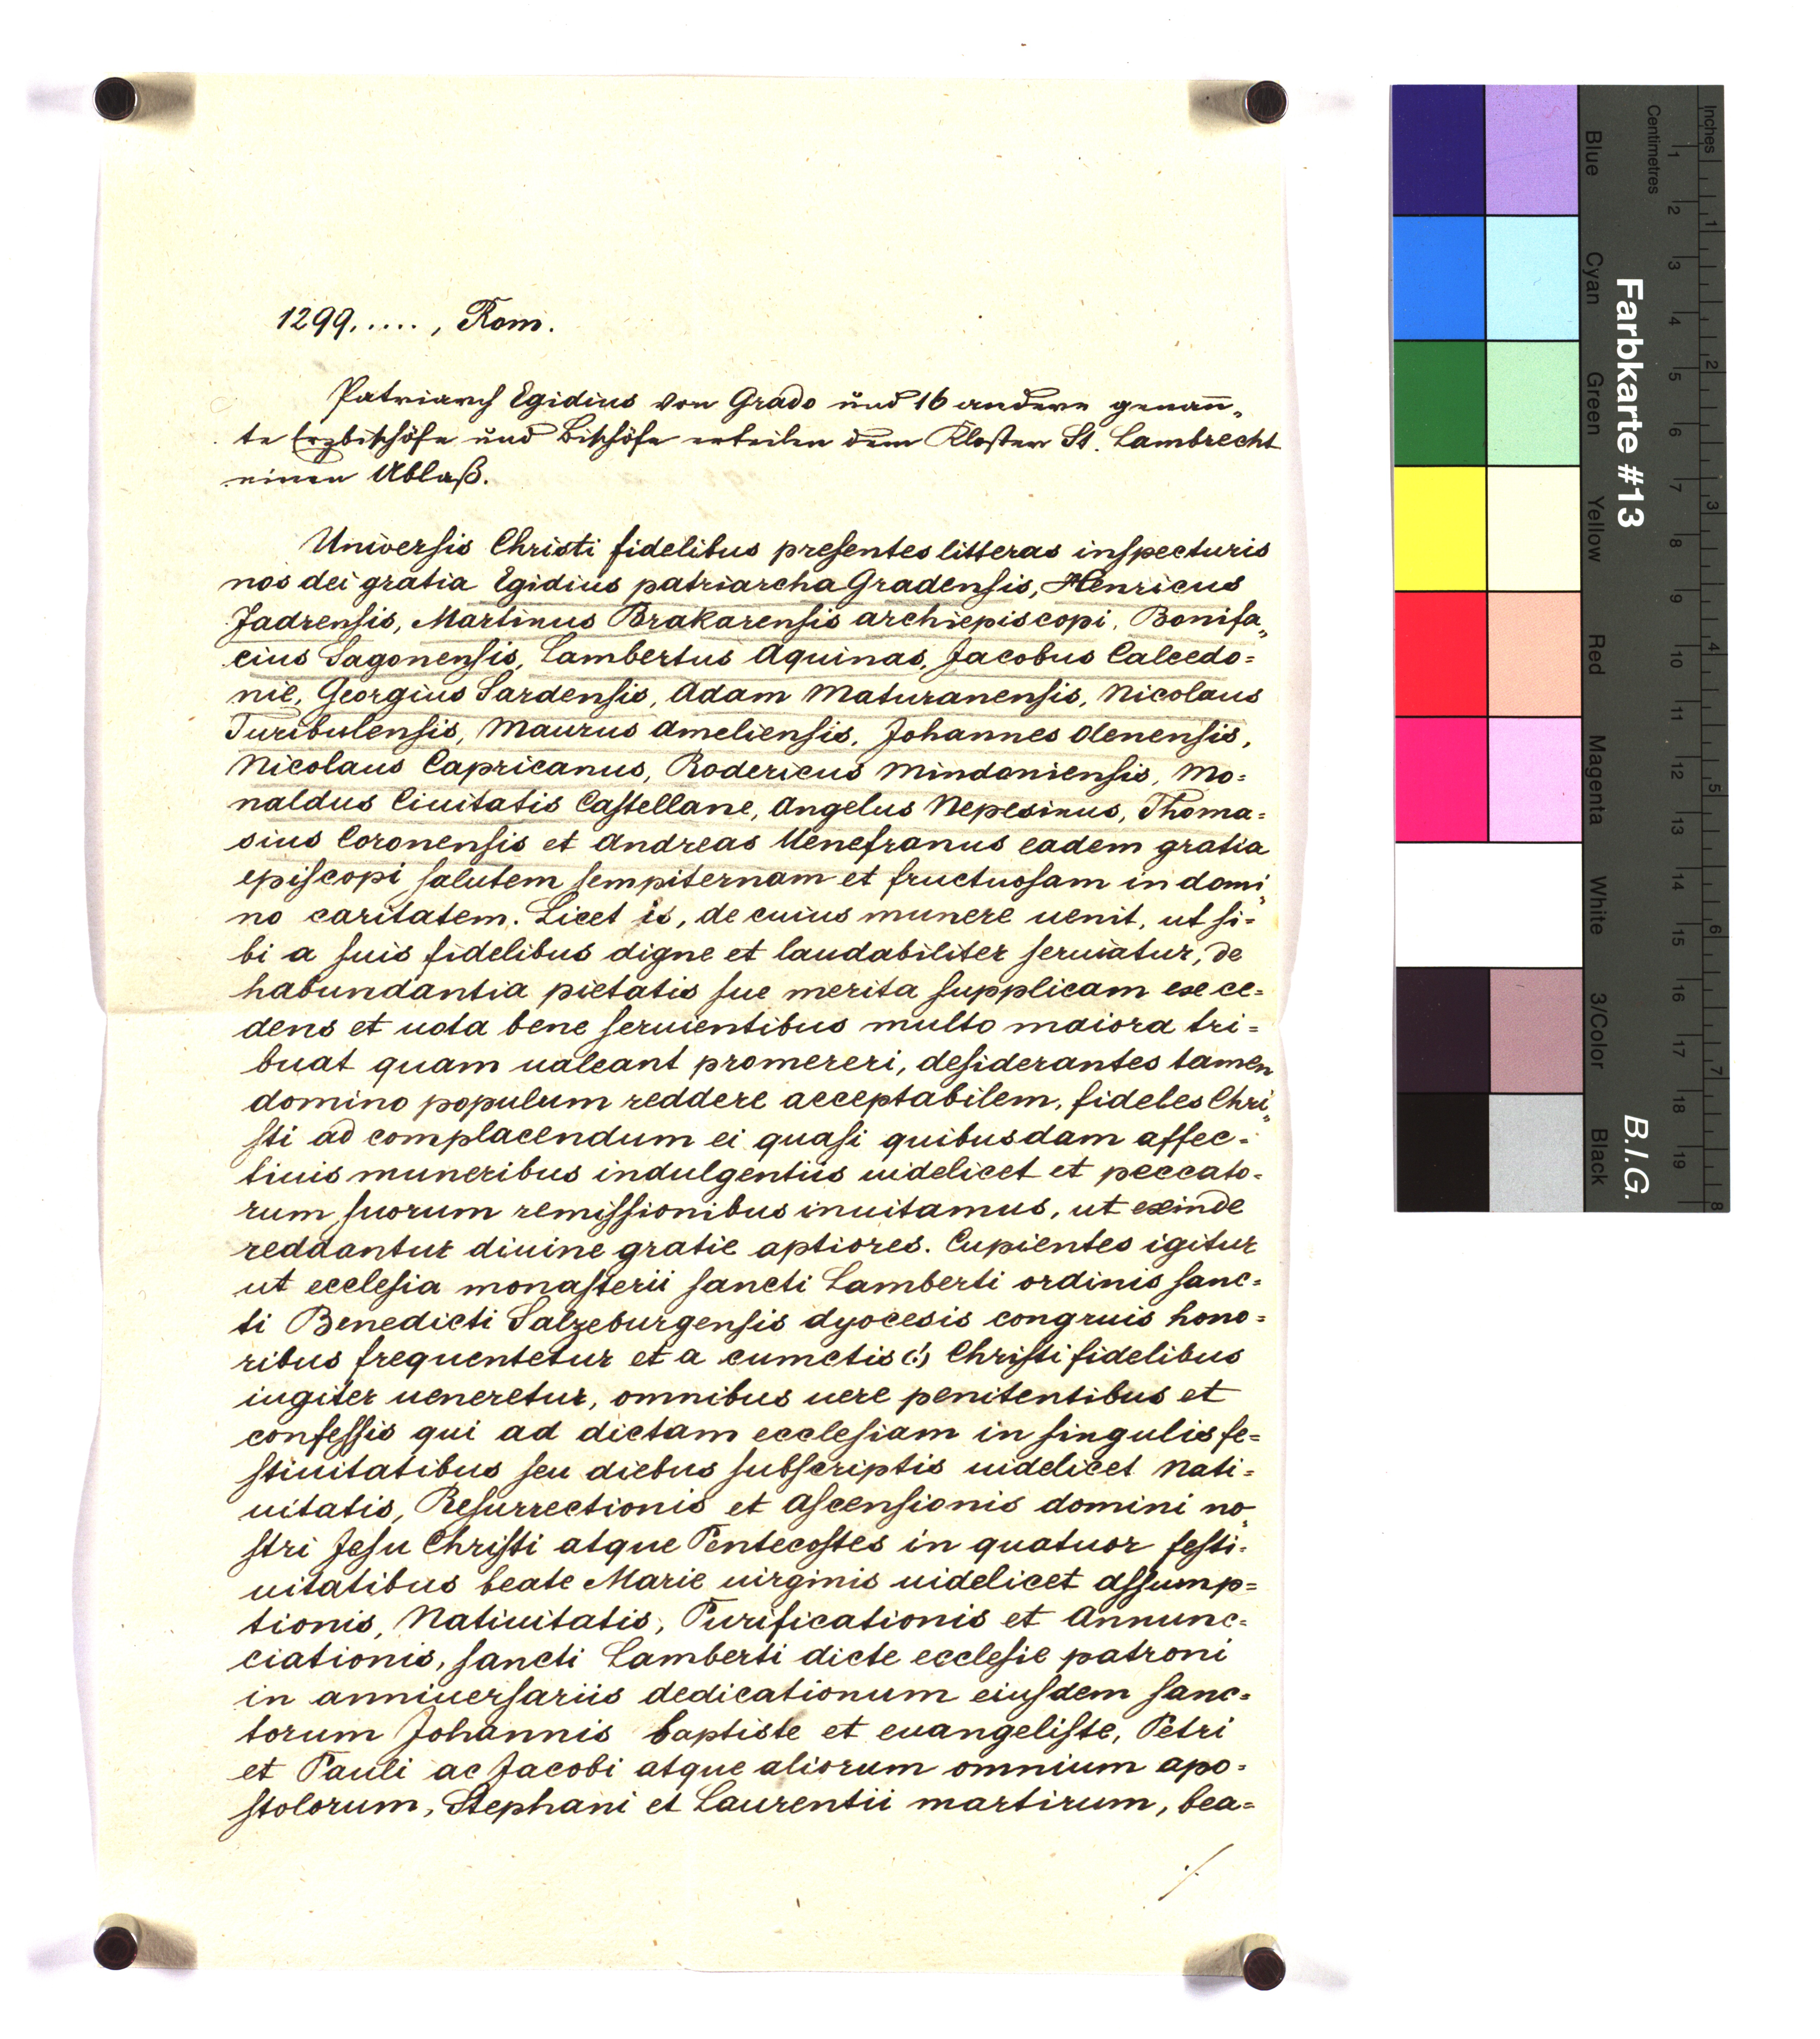 1299, . . . . , Rom.
Patriarch Egidius von Grado und 16 andere genann„
te Erzbischöfe und Bischöfe erteilen dem Kloster St. Lambrecht
einen Ablaß.
Universis Christi fidelibus presentes litteras inspecturis
nos dei gratia Egidius patriarcha Gradensis, Henricus
Jadrensis, Martinus Brakarensis archiepiscopi, Bonifa„
cius Sagonensis, Lambertus Aquinas, Jacobus Calcedo=
nie, Georgius Sardensis, Adam Maturanensis, Nicolaus
Turibulensis, Maurus Ameliensis, Johannes Olenensis,
Nicolaus Capricanus, Rodericus Mindoniensis, Mo=
naldus Ciuitatis Castellane, Angelus Nepesinus, Thoma=
sius Coronensis et Andreas Uenefranus eadem gratia
episcopi salutem sempiternam et fructuosam in domi„
no caritatem. Licet is, de cuius munere uenit, ut si=
bi a suis fidelibus digne et laudabiliter seruiatur, de
habundantia pietatis sue merita supplicam exce=
dens et uota bene seruientibus multo maiora tri=
buat quam ualeant promereri, desiderantes tamen
domino populum reddere acceptabilem, fideles Chri„
sti ad complacendum ei quasi quibusdam affec=
tiuis muneribus indulgentiis uidelicet et peccato=
rum suorum remissionibus inuitamus, ut exinde
reddantur diuine gratie aptiores. Cupientes igitur
ut ecclesia monasterii sancti Lamberti ordinis sanc=
ti Benedicti Salzeburgensis dyocesis congruis hono=
ribus frequentetur et a cumctis (!) Christi fidelibus
iugiter ueneretur, omnibus uere penitentibus et
confessis qui ad dictam ecclesiam in singulis fe=
stiuitatibus seu diebus subscriptis uidelicet Nati=
uitatis, Resurrectionis et Ascensionis domini no„
stri Jesu Christi atque Pentecostes in quatuor festi=
uitatibus beate Marie uirginis uidelicet Assump=
tionis, Natiuitatis, Purificationis et Annunc=
ciationis, sancti Lamberti dicte ecclesie patroni
in anniuersariis dedicationum eiusdem sanc=
torum Johannis baptiste et euangeliste, Petri
et Pauli ac Jacobi atque aliorum omnium apo=
stolorum, Stephani et Laurentii martirum, bea=
./.
Inches
Centimetres
1 2 3 4 5 6 7 8 9 10 11 12 13 14 15 16 17 18 19
1 2 3 4 5 6 7 8
Farbkarte #13
B.I.G.
Blue
Cyan
Green
Yellow
Red
Magenta
White
3/Color
Black